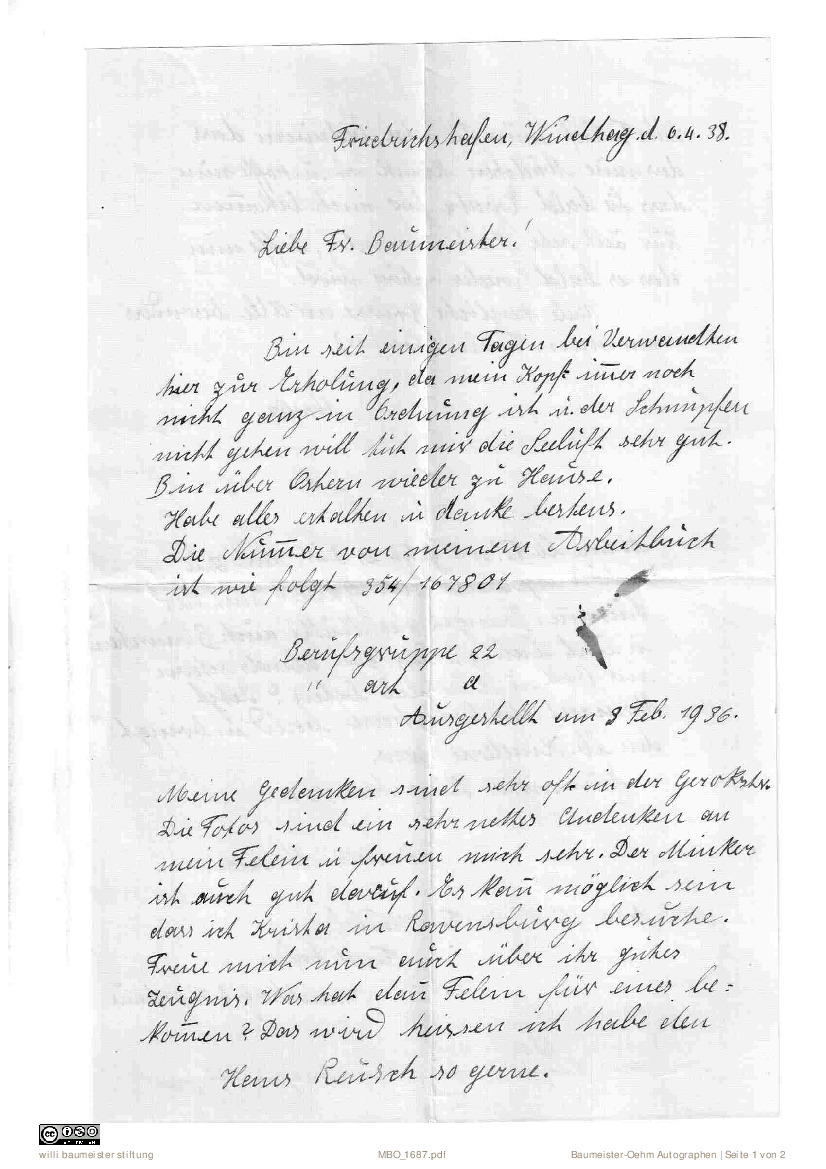 Friedrichshafen, Windhag. d. 6.4.38.
Liebe Fr. Baumeister!
Bin seit einigen Tagen bei Verwandten
hier zur Erholung, da mein Kopf im̅er noch
nicht ganz in Ordnung ist u. der Schnupfen
nicht gehen will tut mir die Seeluft sehr gut.
Bin über Ostern wieder zu Hause.
Habe alles erhalten u danke bestens.
Die Num̅er von meinem Arbeitbuch
ist wie folgt 354/167801
Berufsgruppe 22
" art a
Ausgestellt am 3 Feb. 1936.
Meine Gedanken sind sehr oft in der Gerokstr.
Die Fotos sind ein sehr nettes Andenken an
mein Felein u freuen mich sehr. Der Minker
ist auch gut darauf. Es kan̅ möglich sein
dass ich Krista in Ravensburg besuche.
Freue mich nun auch über ihr gutes
Zeugnis. Was hat dan̅ Felein für eines be=
kom̅en? Das wird heissen ich habe den
Hans Reusch so gerne.
willi baumeister stiftung
MBO_1687.pdf
Baumeister-Oehm Autographen | Seite 1 von 2